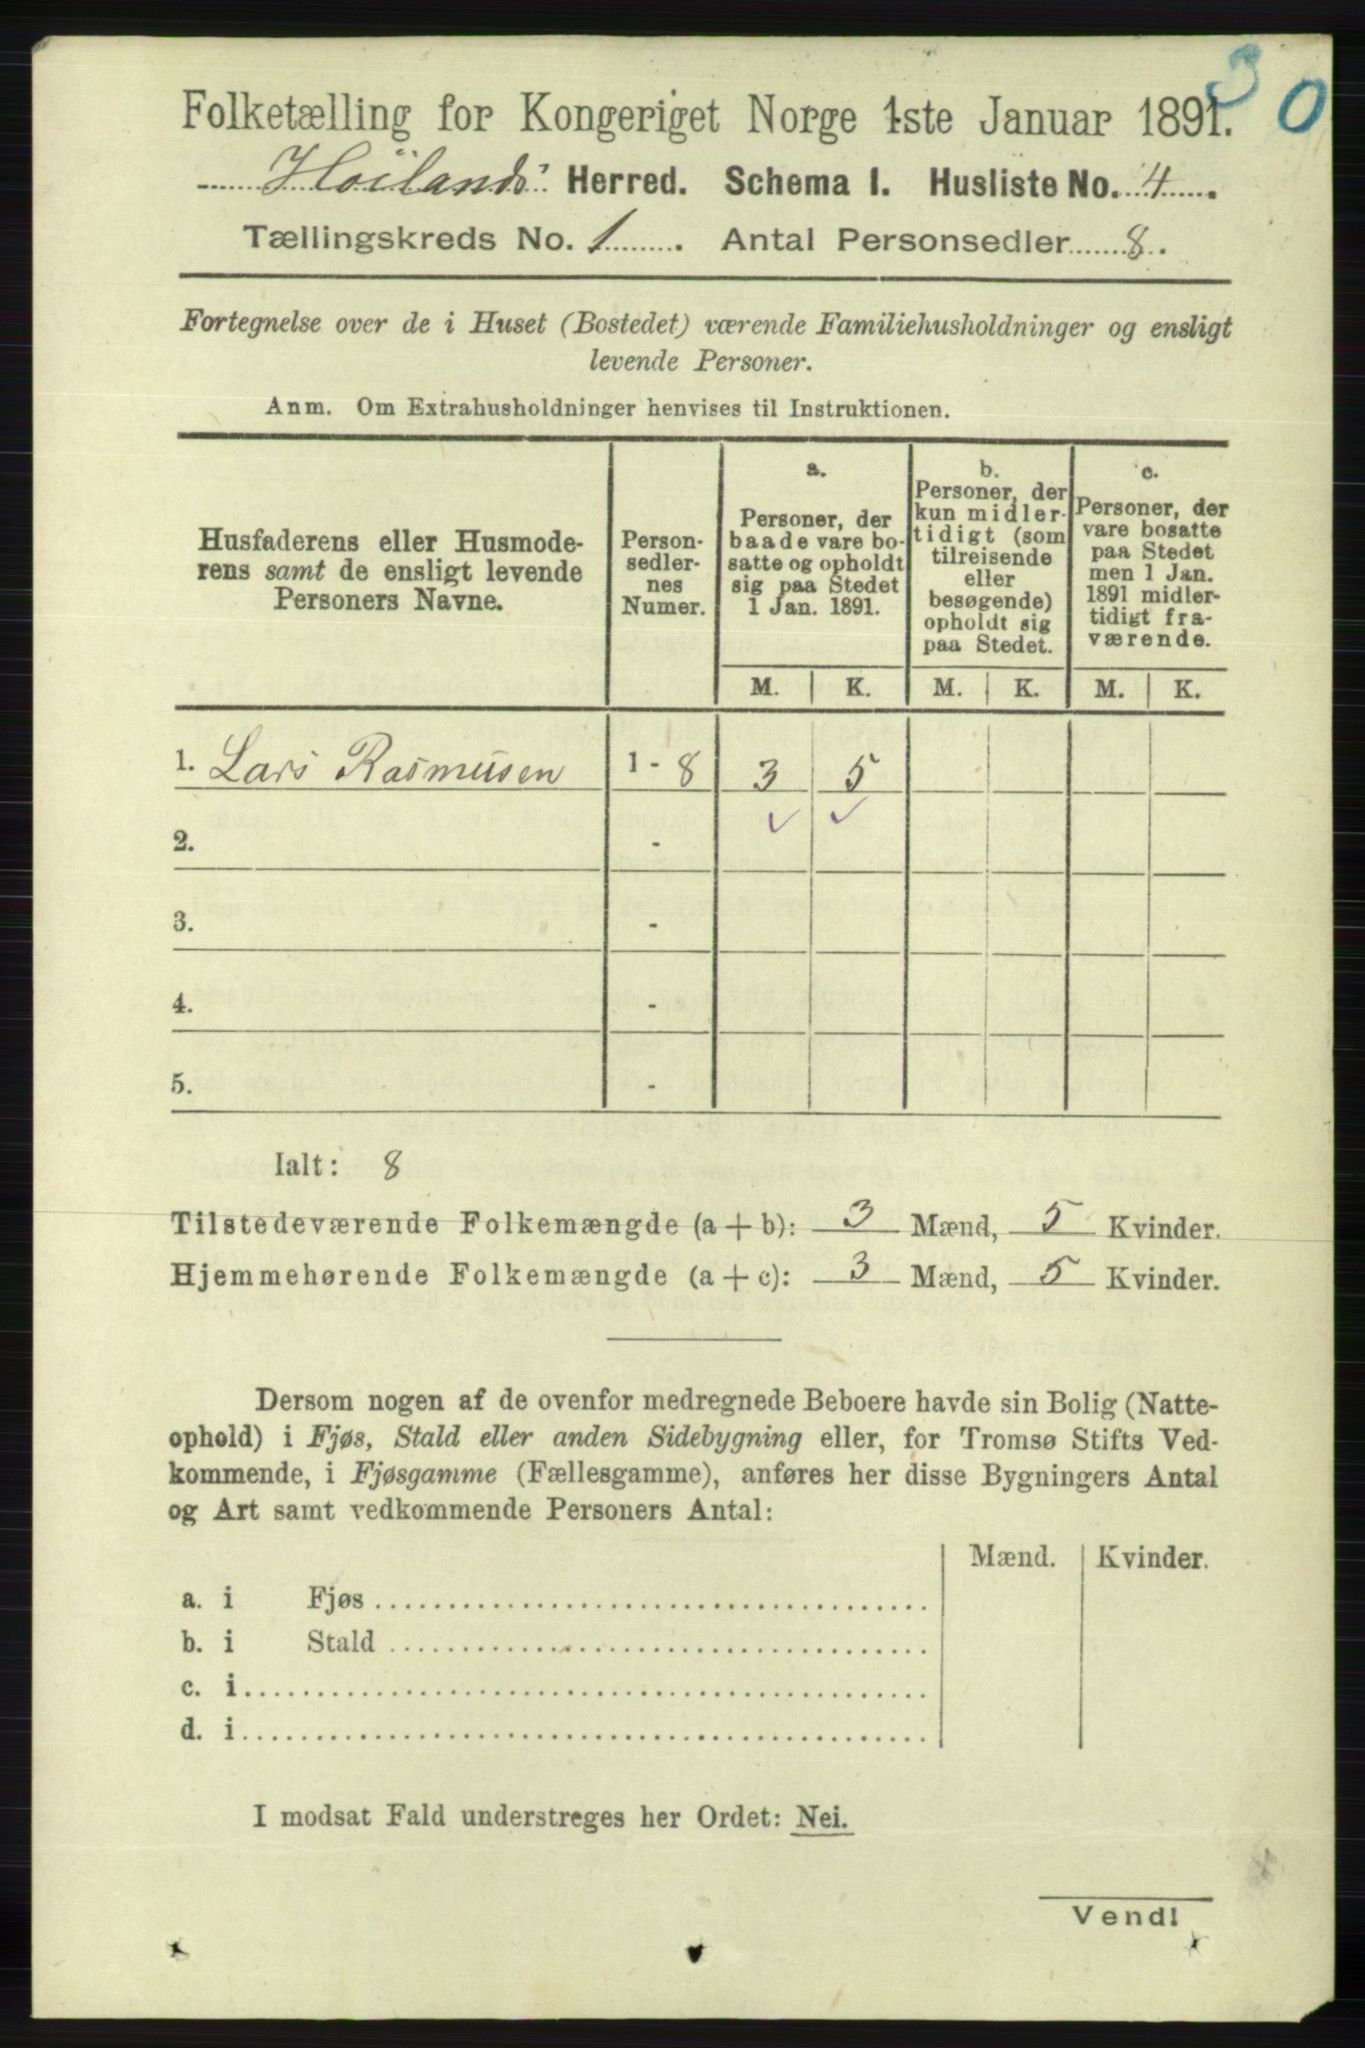 30
Folketælling for Kongeriget Norge 1ste Januar 1891.
Höilands Herred. Schema I. Husliste No. 4.
Tællingskreds No. 1. Antal Personsedler 8.
Fortegnelse over de i Huset (Bostedet) værende Familiehusholdninger og ensligt
levende Personer.
Anm. Om Extrahusholdninger henvises til Instruktionen.
Husfaderens eller Husmode-
rens samt de ensligt levende
Personers Navne.
Person-
sedler-
nes
Numer.
a.
Personer, der
baade vare bo-
satte og opholdt
sig paa Stedet
1 Jan. 1891.
b.
Personer, der
kun midler-
tidigt (som
tilreisende
eller
besøgende)
opholdt sig
paa Stedet.
c.
Personer, der
vare bosatte
paa Stedet
men 1 Jan.
1891 midler-
tidigt fra-
værende.
M. K. M. K. M. K.
1. Lars Rasmusen 1 - 8 3 5
2. -
3. -
4. -
5. -
Ialt: 8
Tilstedeværende Folkemængde (a + b): 3 Mænd, 5 Kvinder.
Hjemmehørende Folkemængde (a + c): 3 Mænd, 5 Kvinder.
Dersom nogen af de ovenfor medregnede Beboere havde sin Bolig (Natte-
ophold) i Fjøs, Stald eller anden Sidebygning eller, for Tromsø Stifts Ved-
kommende, i Fjøsgamme (Fællesgamme), anføres her disse Bygningers Antal
og Art samt vedkommende Personers Antal:
Mænd. Kvinder.
a. i Fjøs
b. i Stald
c. i
d. i
I modsat Fald understreges her Ordet: Nei.
Vend!